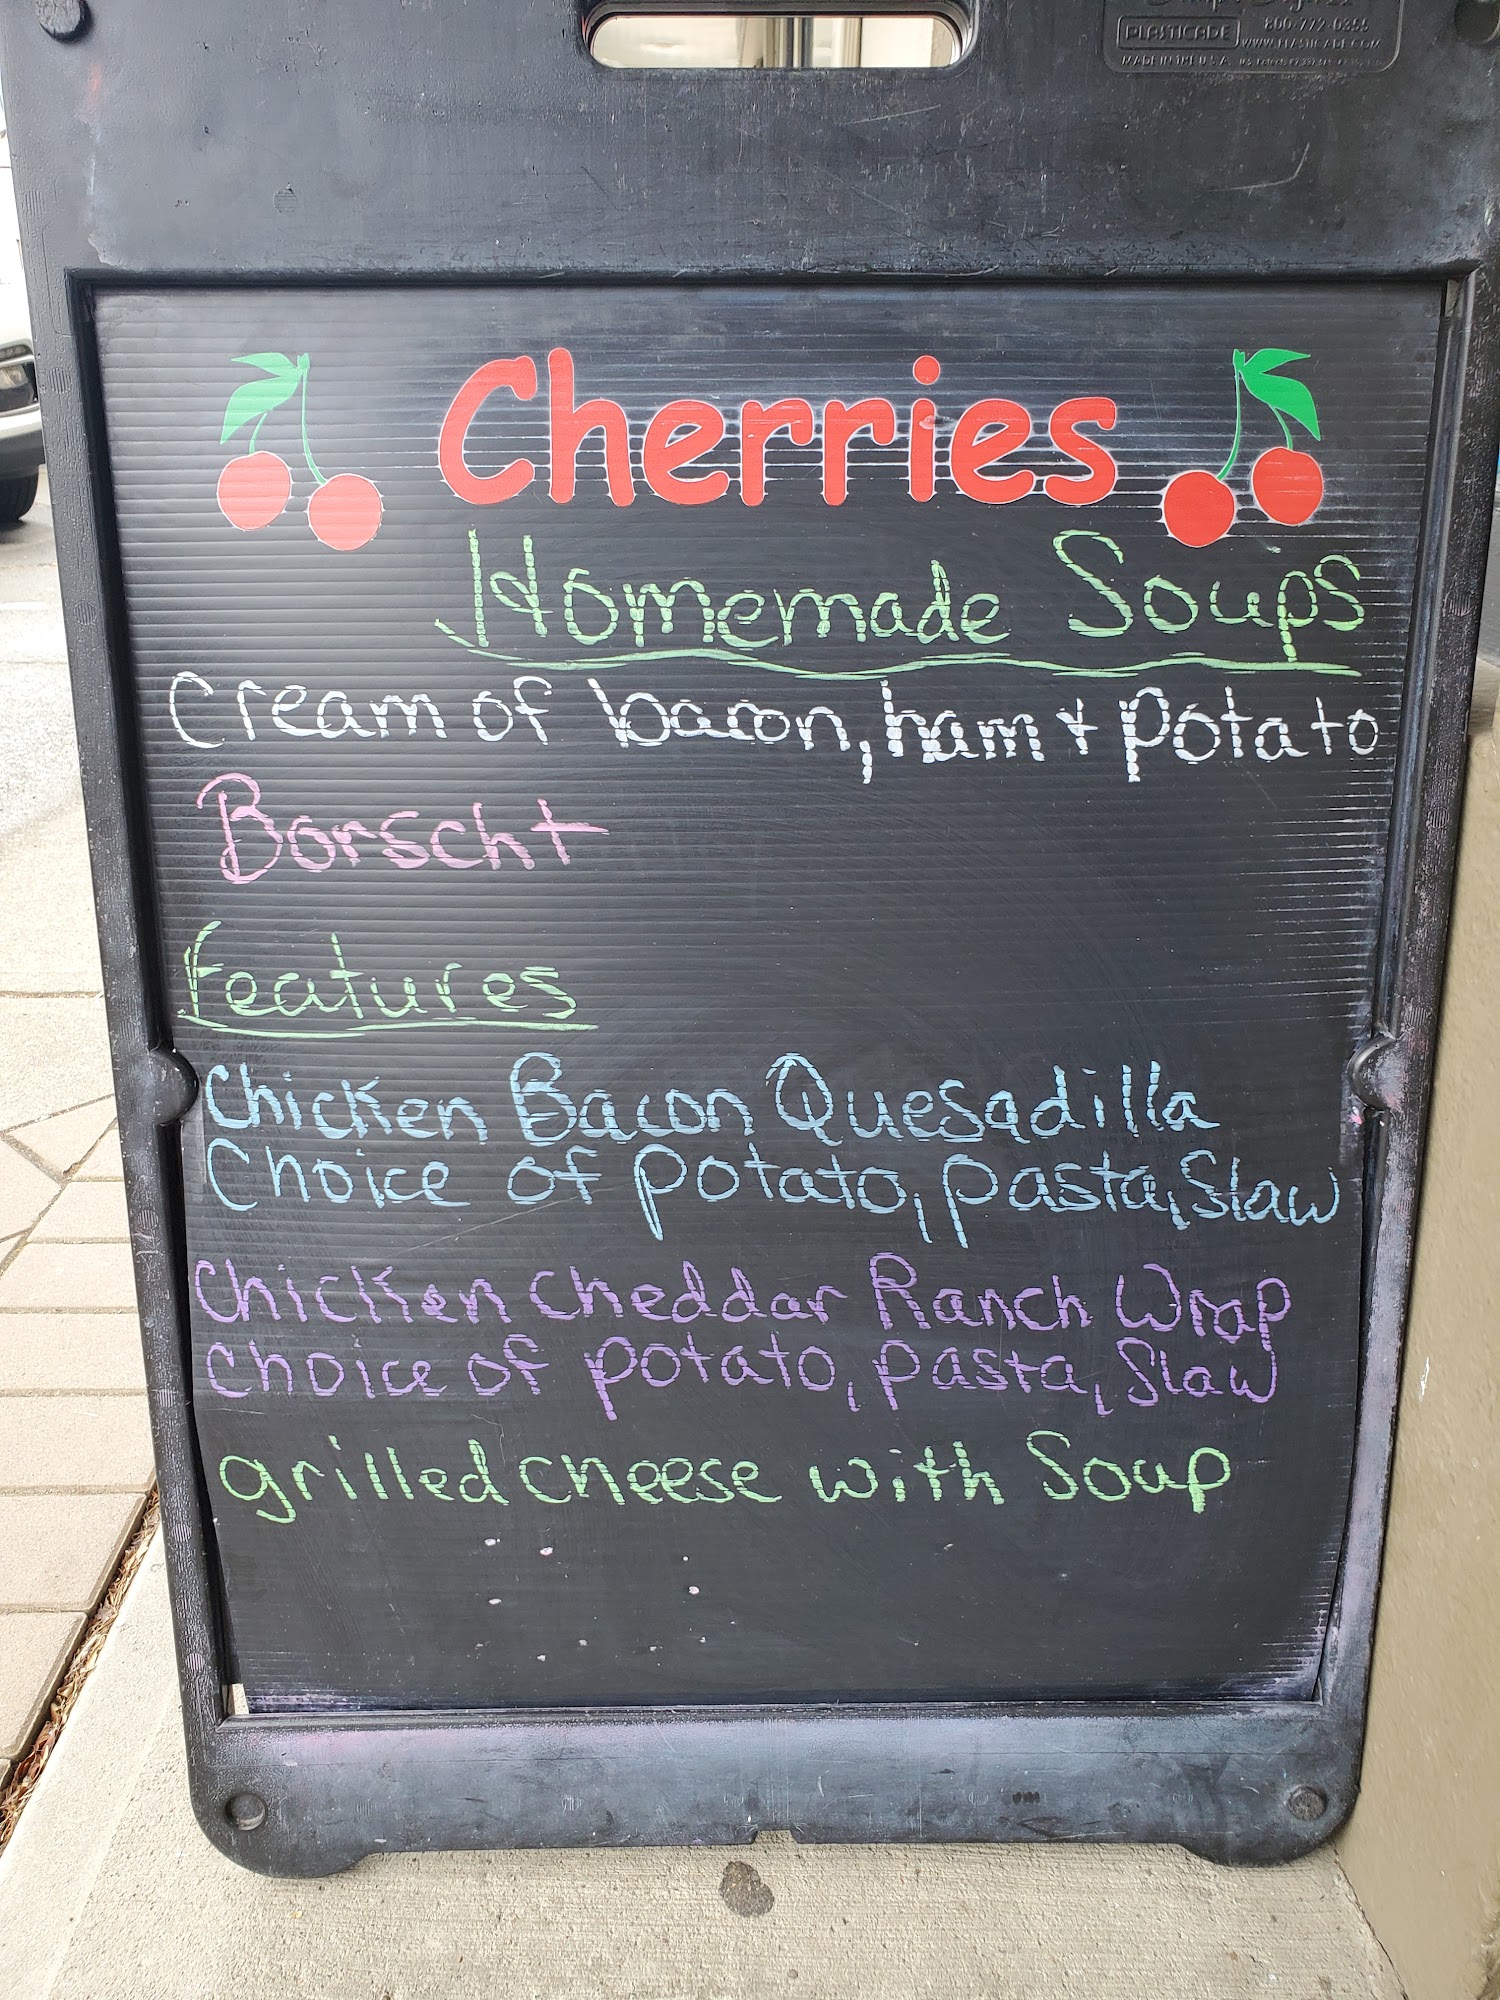 PLASTICADE
800-772-0355
WWW.PLASTICADE.COM
MADE IN THE U.S.A.
Cherries
Homemade Soups
Cream of bacon, ham + potato
Borscht
Features
Chicken Bacon Quesadilla
Choice of potato, pasta, Slaw
Chicken cheddar Ranch Wrap
choice of potato, pasta, Slaw
grilled cheese with Soup